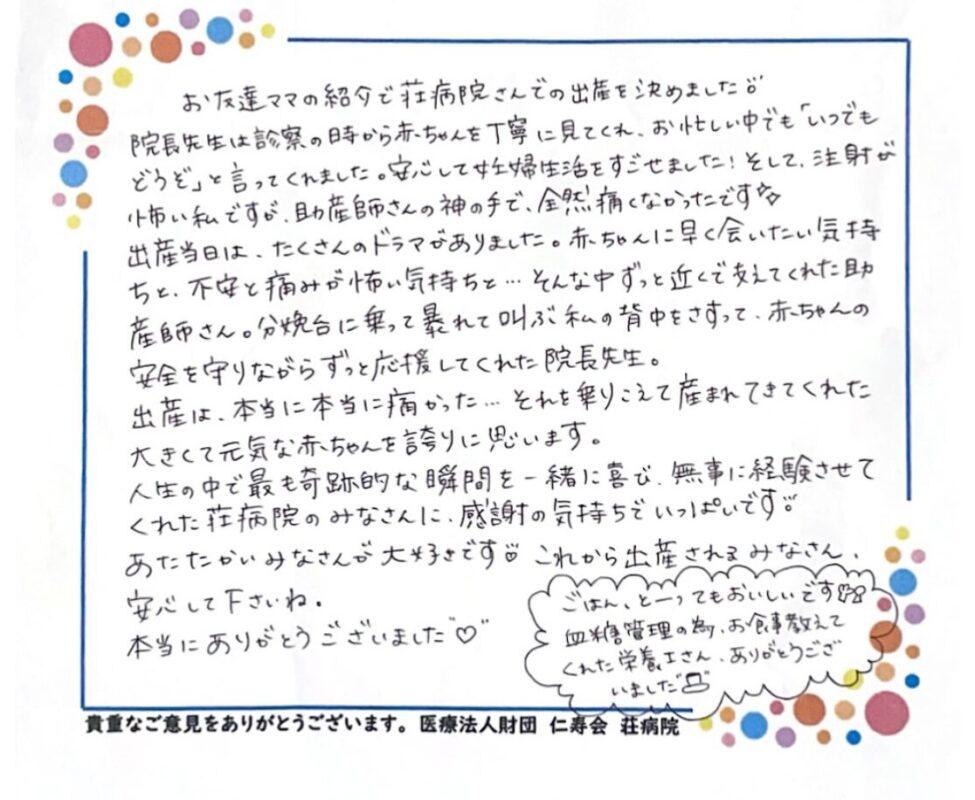 お友達ママの紹介で荘病院さんでの出産を決めました♡
院長先生は診察の時から赤ちゃんを丁寧に見てくれ、お忙しい中でも「いつでも
どうぞ」と言ってくれました。安心して妊婦生活をすごせました！そして、注射が
怖い私ですが、助産師さんの神の手で、全然痛くなかったです☆
出産当日は、たくさんのドラマがありました。赤ちゃんに早く会いたい気持
ちと、不安と痛みが怖い気持ちと…そんな中ずっと近くで支えてくれた助
産師さん。分娩台に乗って暴れて叫ぶ私の背中をさすって、赤ちゃんの
安全を守りながらずっと応援してくれた院長先生。
出産は、本当に本当に痛かった…それを乗りこえて産まれてきてくれた
大きくて元気な赤ちゃんを誇りに思います。
人生の中で最も奇跡的な瞬間を一緒に喜び、無事に経験させて
くれた荘病院のみなさんに、感謝の気持ちでいっぱいです♡
あたたかいみなさんが大好きです♡これから出産されるみなさん、
安心して下さいね。
本当にありがとうございました"♡"
ごはん、とーってもおいしいです
血糖管理の為、お食事教えて
くれた栄養士さん、ありがとうござ
いました
貴重なご意見をありがとうございます。医療法人財団 仁寿会 荘病院